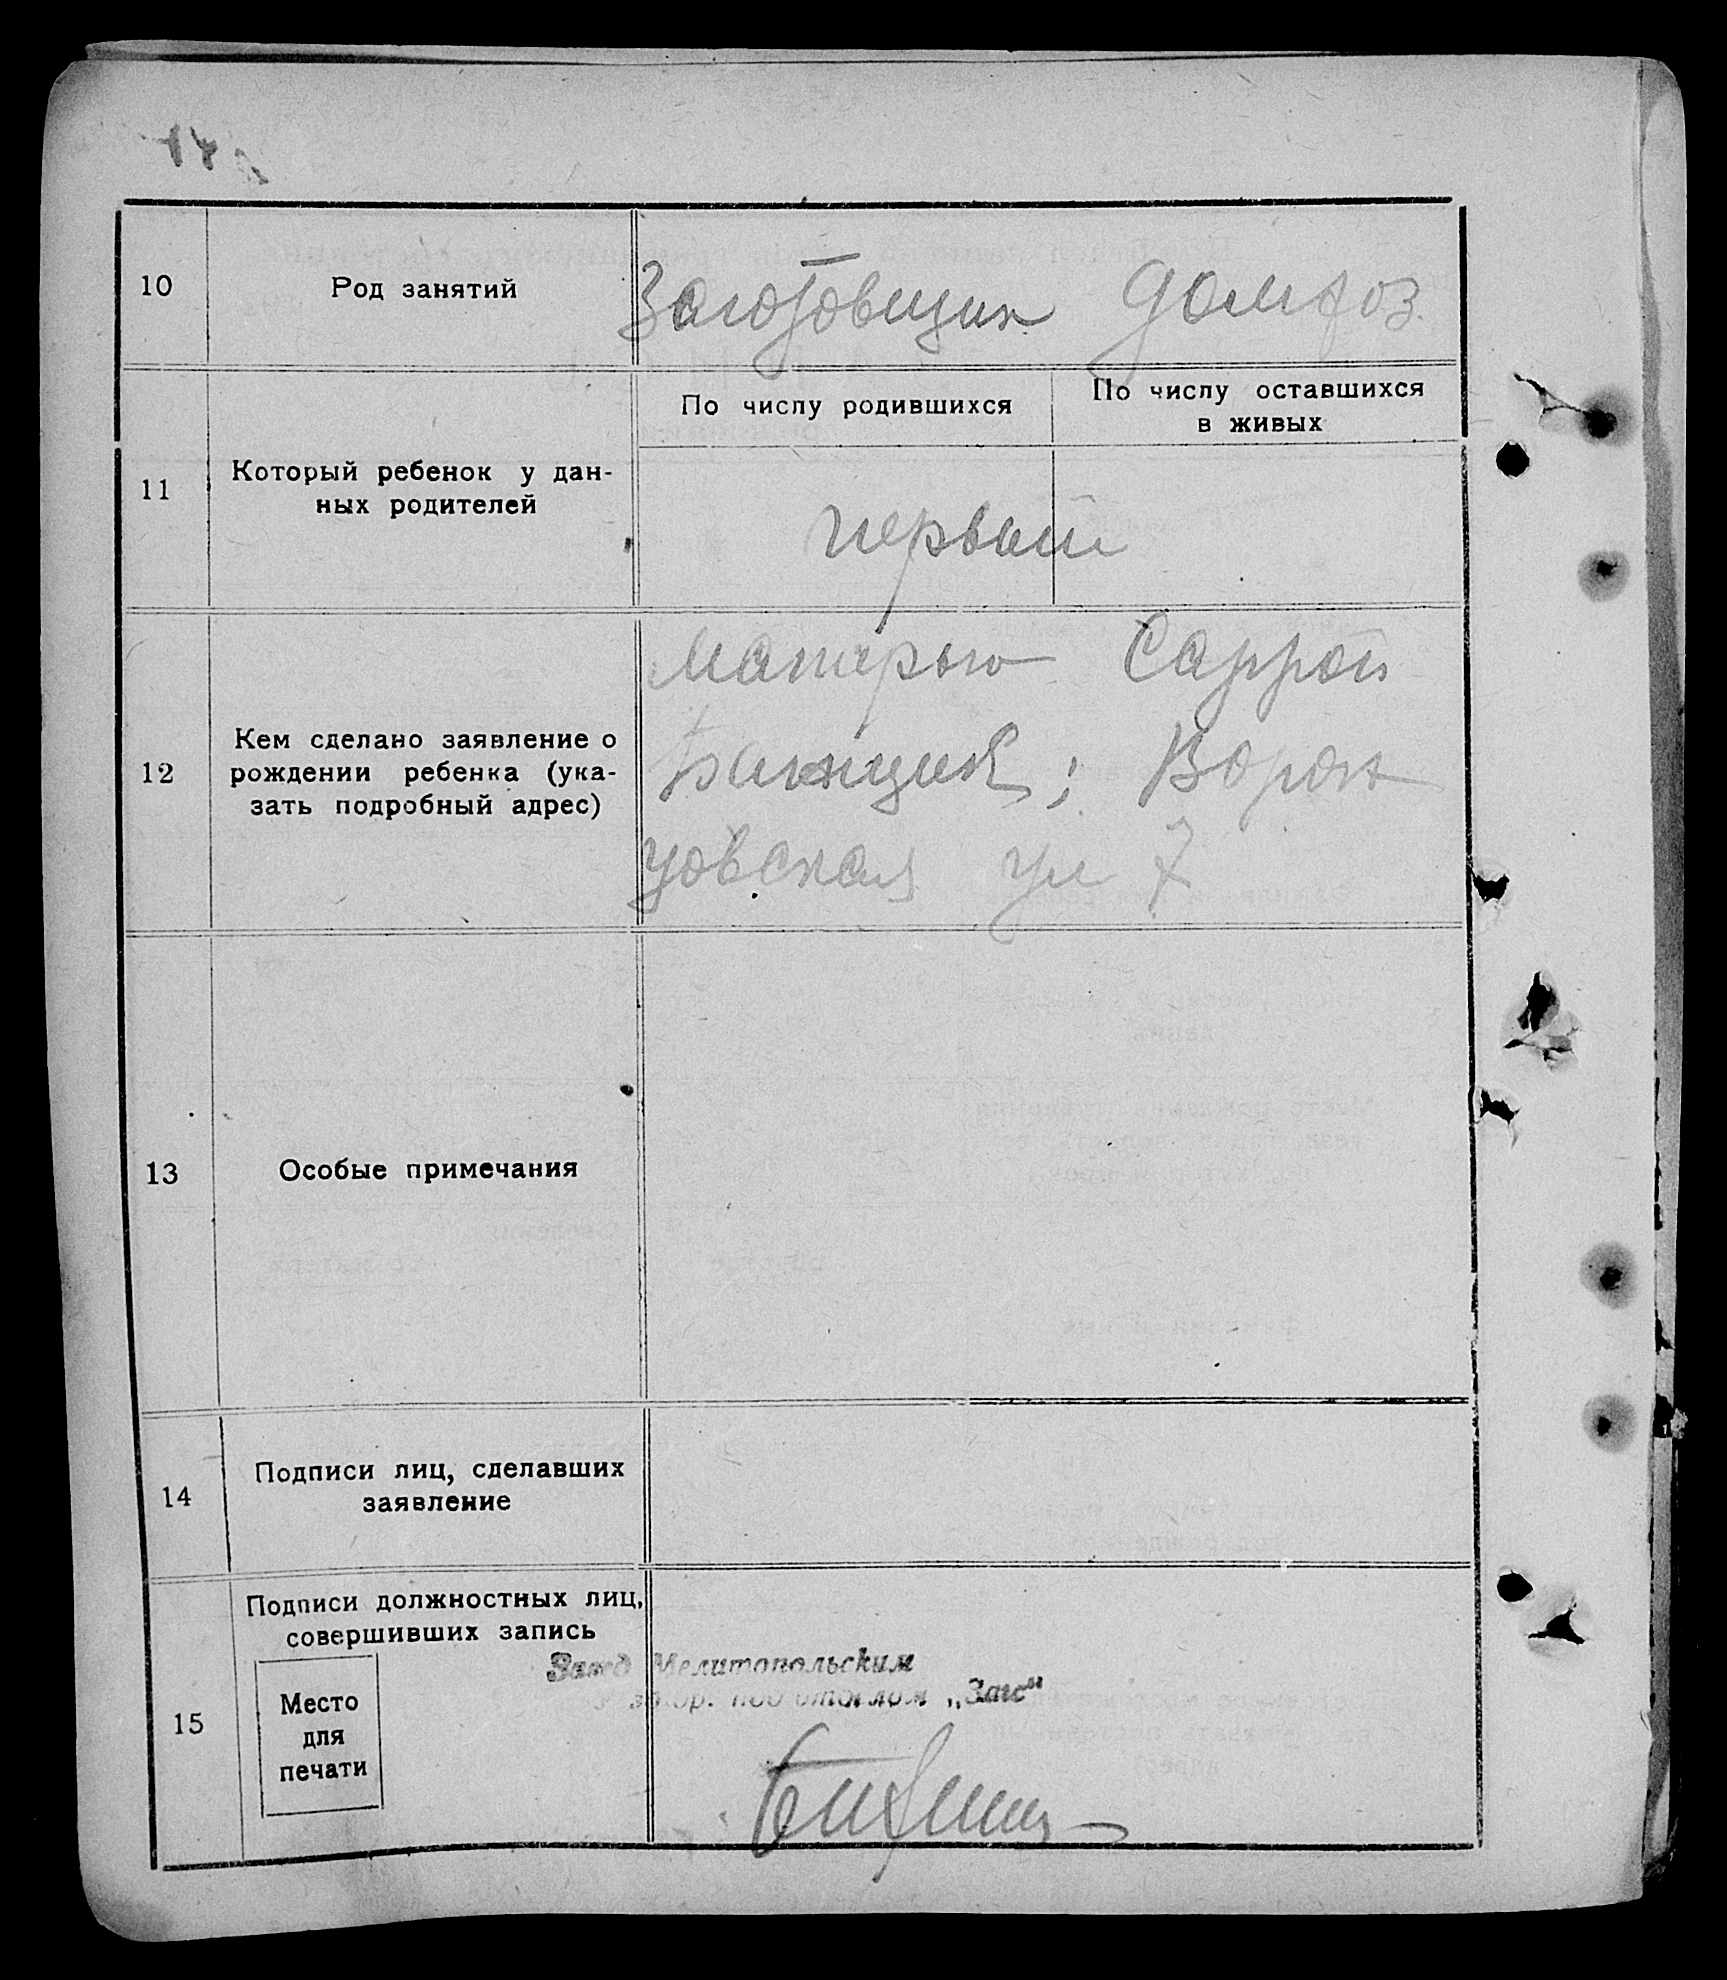 14
10
Род занятий
Заготовщик домхоз.
11
Который ребенок у дан-
ных родителей
По числу родившихся
По числу оставшихся
в живых
первый
12
Кем сделано заявление о
рождении ребенка (ука-
зать подробный адрес)
Матерью Саррой
; Ворон
цовская ул 7
13
Особые примечания
14
Подписи лиц, сделавших
заявление
15
Подписи должностных лиц,
совершивших запись
Место
для
печати
Мелитопольским
"Загс"